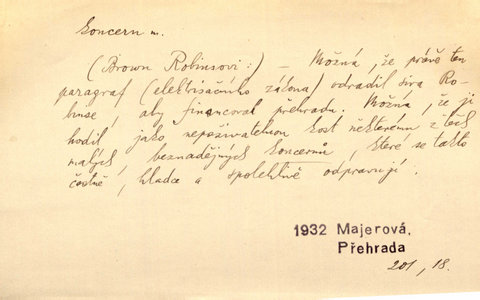 Koncern m.
(Brown Robinsovi:) – Možná, že právě ten
paragraf (elektrisačního zákona) odradil sira Ro-
binse, aby financoval přehradu. Možná, že ji
hodil jako nepoživatelnou kost některému z těch
malých, beznadějných koncernů, které se takto
čestně, hladce a spolehlivě odpravují.
1932 Majerová,
Přehrada
201, 18.